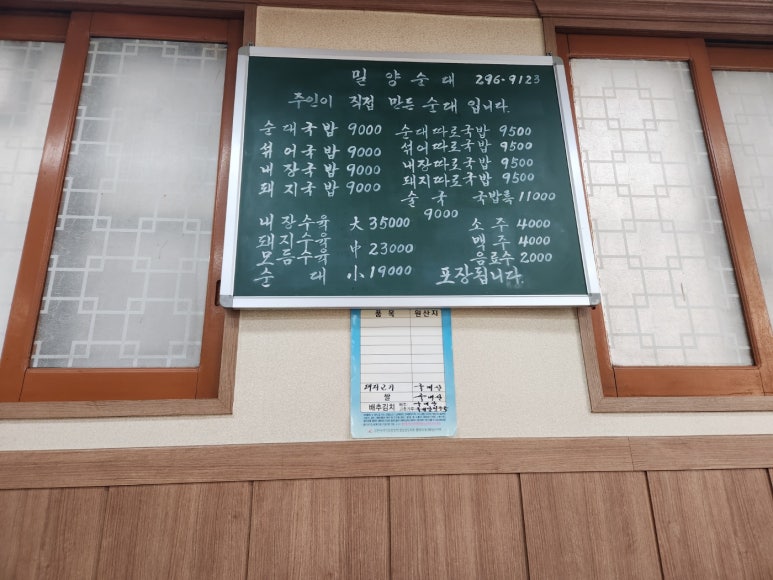 밀양순대 296-9123
주인이 직접 만든 순대 입니다.
순대국밥 9000 순대따로국밥 9500
섞어국밥 9000 섞어따로국밥 9500
내장국밥 9000 내장따로국밥 9500
돼지국밥 9000 돼지따로국밥 9500
술국 9000 국밥특 11000
내장수육 大 35000 소주 4000
돼지수육 맥주 4000
모듬수육 中 23000 음료수 2000
순대 小 19000 포장됩니다.
품목 원산지
돼지고기 국내산
쌀 국내산
배추김치